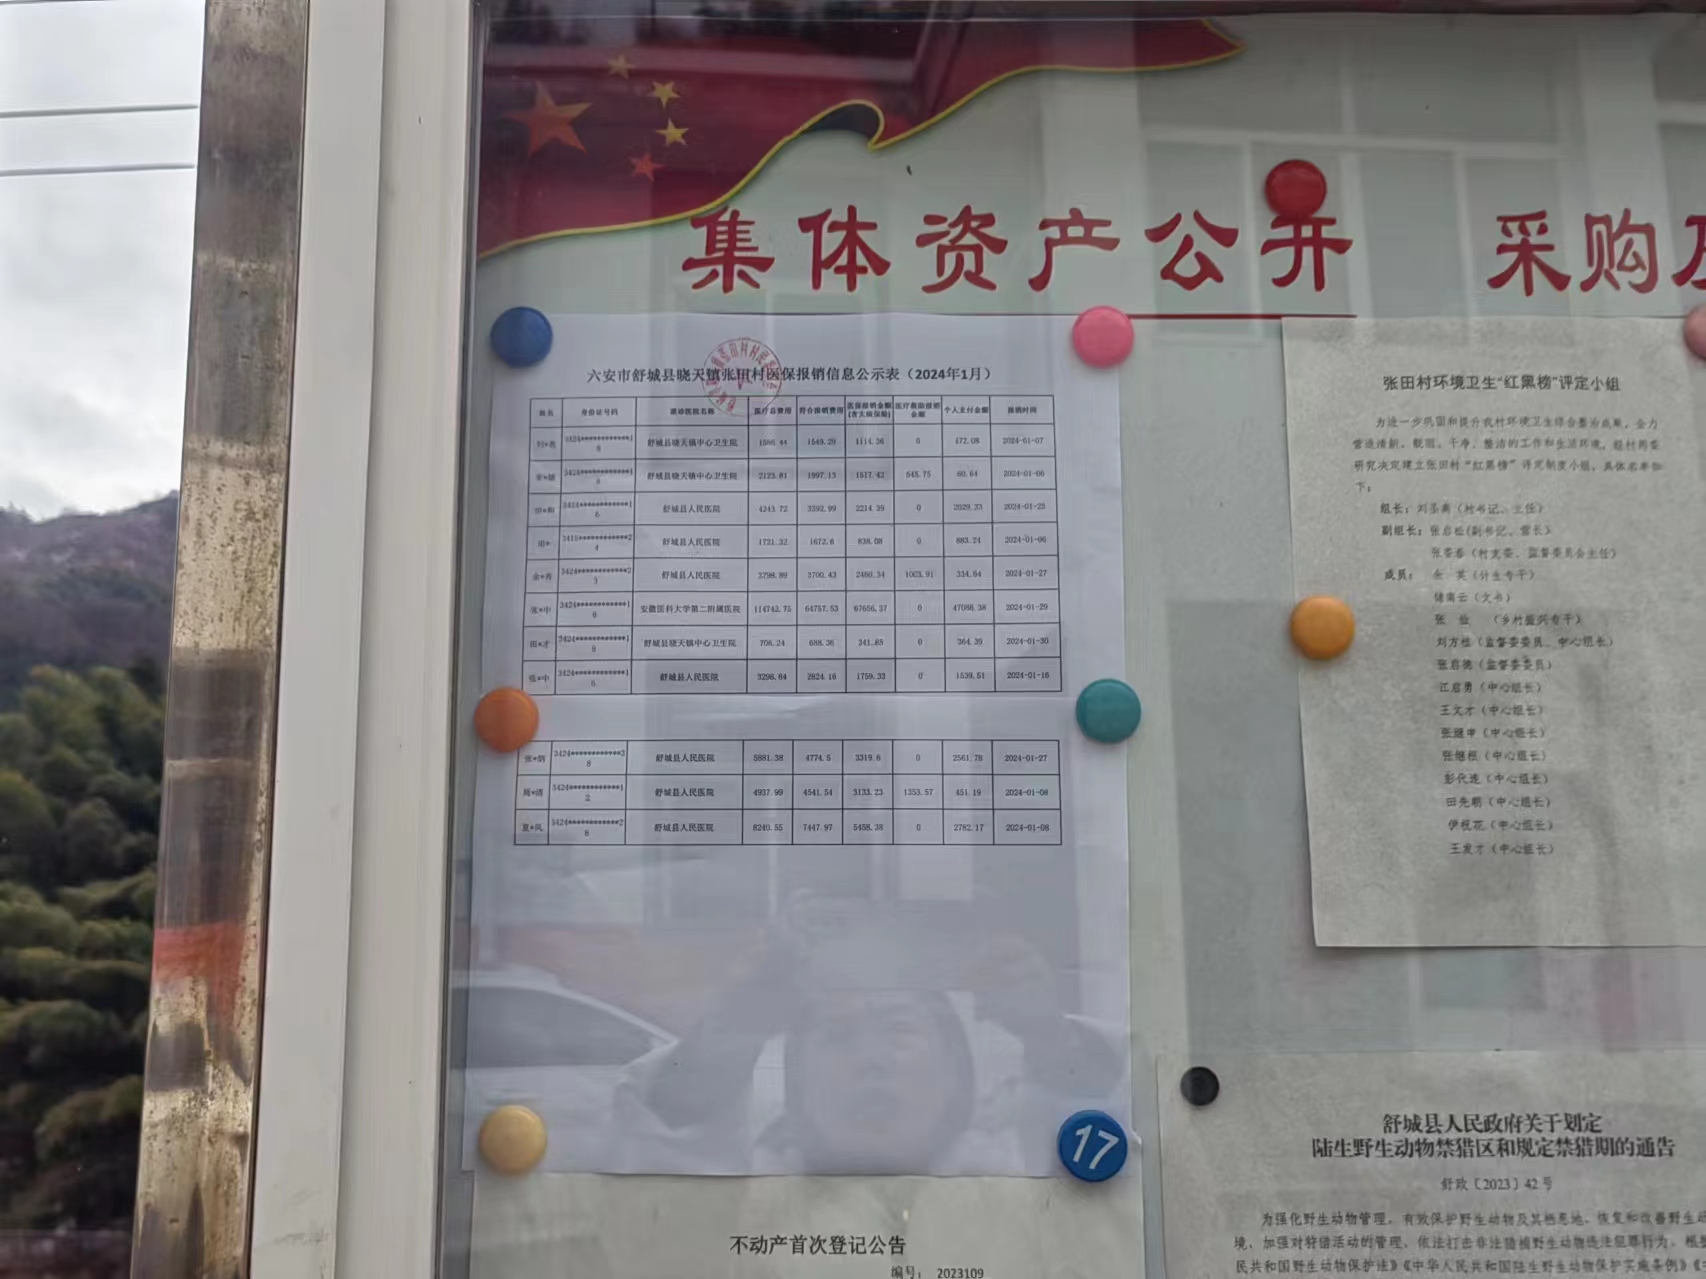 集体资产公开
采购
六安市舒城县晓天镇张田村医保报销信息公示表（2024年1月）
姓名 身份证号码 就诊医院名称 医疗总费用 符合报销费用 医保报销金额(含大病保险) 医疗救助报销金额 个人支付金额 报销时间
舒城县晓天镇中心卫生院 1586.44 1549.29 1114.36 0 472.08 2024-01-07
舒城县晓天镇中心卫生院 2123.81 1997.15 1517.42 545.75 60.64 2024-01-06
舒城县人民医院 4243.72 3392.99 2214.39 0 2029.33 2024-01-25
舒城县人民医院 1721.32 1672.6 838.08 0 883.24 2024-01-06
余*秀 舒城县人民医院 3798.89 3700.43 2460.34 1003.91 334.64 2024-01-27
张*中 安徽医科大学第二附属医院 114742.75 64757.53 67656.37 0 47086.38 2024-01-29
田*才 舒城县晓天镇中心卫生院 706.24 688.36 341.85 0 364.39 2024-01-30
张*中 舒城县人民医院 3298.84 2824.16 1759.33 0 1539.51 2024-01-16
张*炳 3424************38 舒城县人民医院 5881.38 4774.5 3319.6 0 2561.78 2024-01-27
3424************12 舒城县人民医院 4937.99 4541.54 3133.23 1353.57 451.19 2024-01-08
3424************28 舒城县人民医院 8240.55 7447.97 5458.38 0 2782.17 2024-01-08
17
不动产首次登记公告
编号： 2023109
张田村环境卫生“红黑榜”评定小组
为进一步巩固和提升我村环境卫生综合整治成果，全力
营造清新、靓丽、干净、整洁的工作和生活环境，经村两委
研究决定建立张田村“红黑榜”评定制度小组，具体名单如
下：
组长：刘圣南（村书记、主任）
副组长：张启松（副书记、营长）
张委春（村支委、监督委员会主任）
成员： 余 英（计生专干）
储南云（文书）
张 俭 （乡村振兴专干）
刘方桂（监督委委员、中心组长）
张启德（监督委委员）
江启勇（中心组长）
王文才（中心组长）
张继申（中心组长）
张继根（中心组长）
彭代连（中心组长）
田先朝（中心组长）
伊祝花（中心组长）
王发才（中心组长）
舒城县人民政府关于划定
陆生野生动物禁猎区和规定禁猎期的通告
舒政〔2023〕42号
为强化野生动物管理，有效保护野生动物及其栖息地，恢复和改善野生动
境，加强对狩猎活动的管理，依法打击非法猎捕野生动物违法犯罪行为，根据
民共和国野生动物保护法》《中华人民共和国陆生野生动物保护实施条例》《